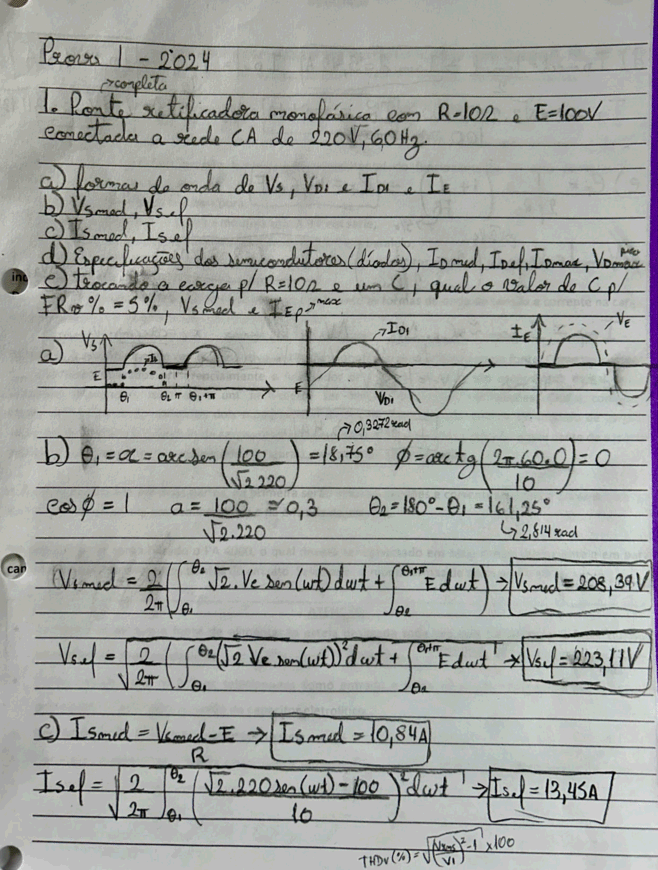 Prova 1 - 2024
→completa
1. Ponte retificadora monofásica com R=10Ω e E=100V
conectada a rede CA de 220V, 60Hz.
a) formas de onda de Vs, VD1 e ID1 e IE
b) Vsmed, Vsef
c) Ismed, Isef
d) Especificações dos semicondutores (diodos), IDmed, IDef, IDmax, VDmax
e) trocando a carga p/ R=10Ω e um C, qual o valor de C p/
FR % = 5%, Vsmed e IEp→max
a) Vs E θ1 θ2 π θ1+π
→ID1 E VD1
IE VE
b) θ1=α=arcsen(100/√2.220)=18,75° →0,3272rad φ=arctg(2π.60.0/10)=0
cosφ=1 a=100/√2.220≃0,3 θ2=180°-θ1=161,25°
↳2,814 rad
Vsmed = 2/2π(∫θ1θ2 √2.Ve sen(wt)dwt+∫θ2θ1+π E dwt)→Vsmed=208,39V
Vsef=√2/2π(∫θ1θ2(√2 Ve sen(wt))²dwt+∫θ2θ1+π E dwt →Vsef=223,11V
c) Ismed = Vsmed-E/R → Ismed=10,84A
Isef=√2/2π∫θ1θ2(√2.220sen(wt)-100/10)²dwt →Isef=13,45A
THDv(%)=√(Vrms/V1)²-1 ×100
inc
can